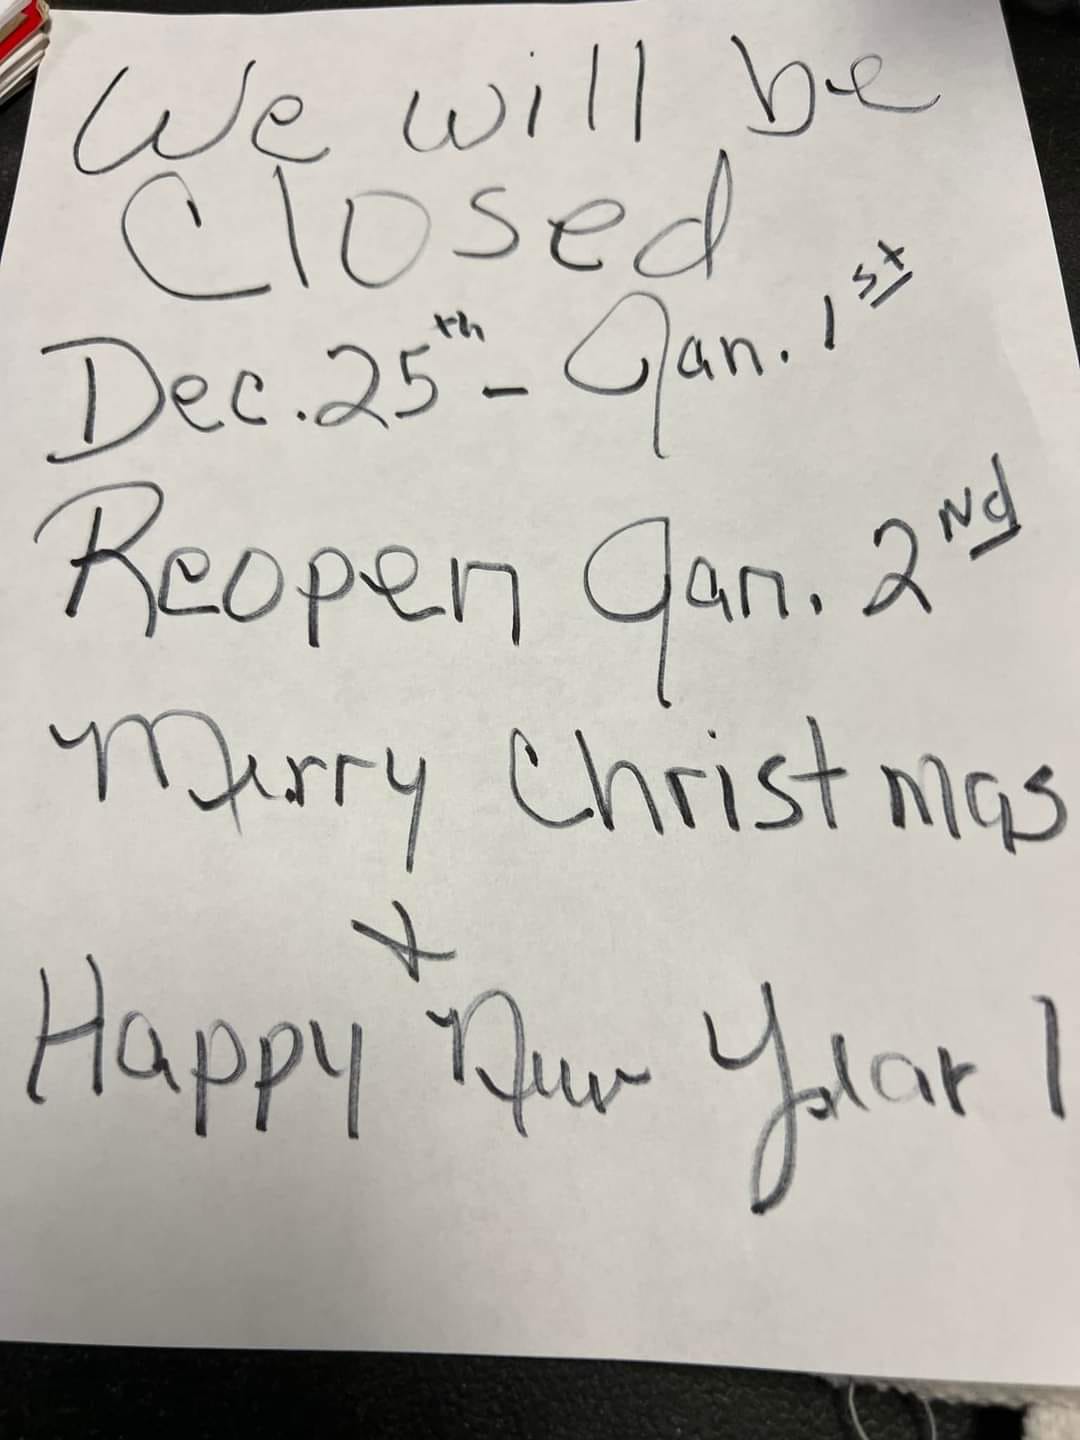 We will be
Closed
Dec. 25th - Jan. 1st
Reopen Jan. 2nd
Merry Christmas
+
Happy New Year !